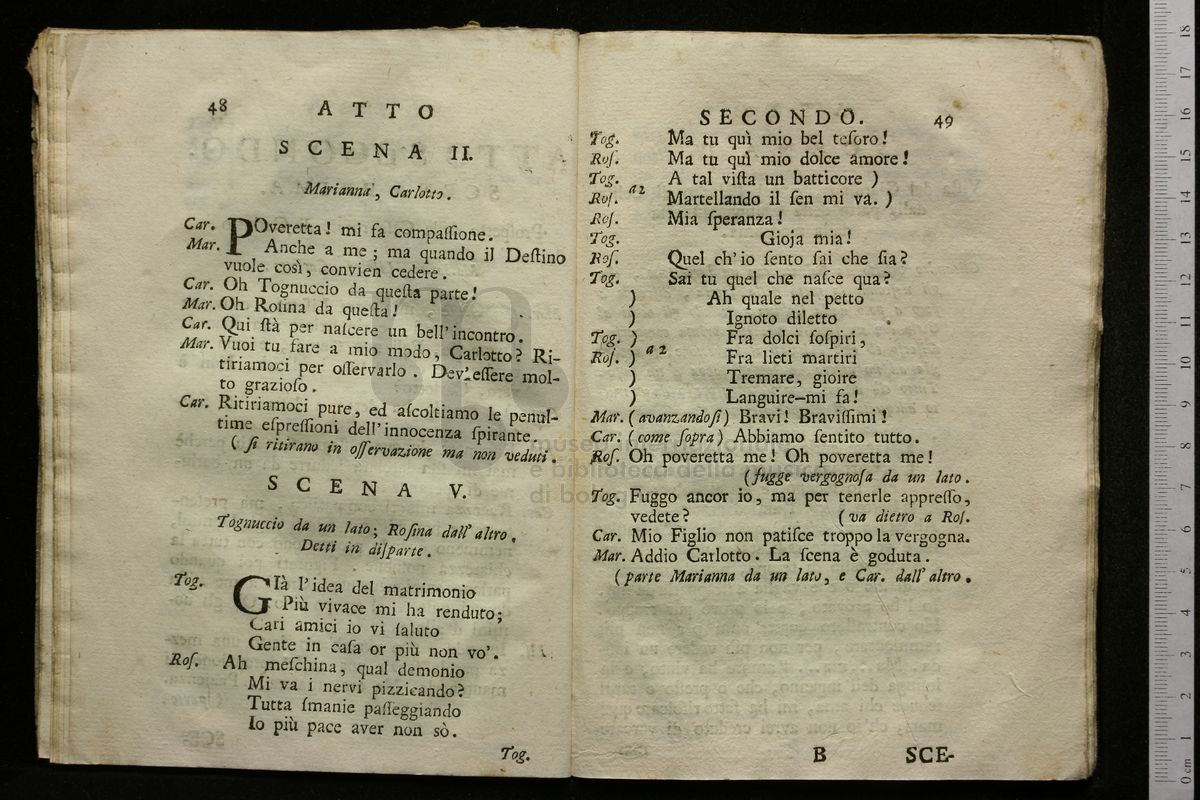 48
ATTO
SCENA II.
Marianna, Carlotto.
Car. POveretta! mi fa compaſſione.
Mar. Anche a me; ma quando il Deſtino
vuole così, convien cedere.
Car. Oh Tognuccio da queſta parte!
Mar. Oh Roſina da queſta!
Car. Qui ſtà per naſcere un bell'incontro.
Mar. Vuoi tu fare a mio modo, Carlotto? Ri-
tiriamoci per oſſervarlo. Dev'eſſere mol-
to grazioſo.
Car. Ritiriamoci pure, ed aſcoltiamo le penul-
time eſpreſſioni dell'innocenza ſpirante.
( ſi ritirano in oſſervazione ma non veduti.
SCENA V.
Tognuccio da un lato; Roſina dall'altro,
Detti in diſparte.
Tog. GIà l'idea del matrimonio
Più vivace mi ha renduto;
Cari amici io vi ſaluto
Gente in caſa or più non vo'.
Roſ. Ah meſchina, qual demonio
Mi va i nervi pizzicando?
Tutta ſmanie paſſeggiando
Io più pace aver non sò.
Tog.
SECONDO.
49
Tog. Ma tu quì mio bel teſoro!
Roſ. Ma tu quì mio dolce amore!
Tog. A tal viſta un batticore )
a 2
Roſ. Martellando il ſen mi va. )
Roſ. Mia ſperanza!
Tog. Gioja mia!
Roſ. Quel ch'io ſento ſai che ſia?
Tog. Sai tu quel che naſce qua?
) Ah quale nel petto
) Ignoto diletto
Tog. ) Fra dolci ſoſpiri,
Roſ. ) a 2 Fra lieti martiri
) Tremare, gioire
) Languire-mi fa!
Mar. (avanzandoſi) Bravi! Braviſſimi!
Car. (come ſopra) Abbiamo ſentito tutto.
Roſ. Oh poveretta me! Oh poveretta me!
(fugge vergognoſa da un lato.
Tog. Fuggo ancor io, ma per tenerle appreſſo,
vedete? (va dietro a Roſ.
Car. Mio Figlio non patiſce troppo la vergogna.
Mar. Addio Carlotto. La ſcena è goduta.
(parte Marianna da un lato, e Car. dall'altro.
B SCE-
museo internazionale
e biblioteca della musica
di bologna
0 cm 1 2 3 4 5 6 7 8 9 10 11 12 13 14 15 16 17 18